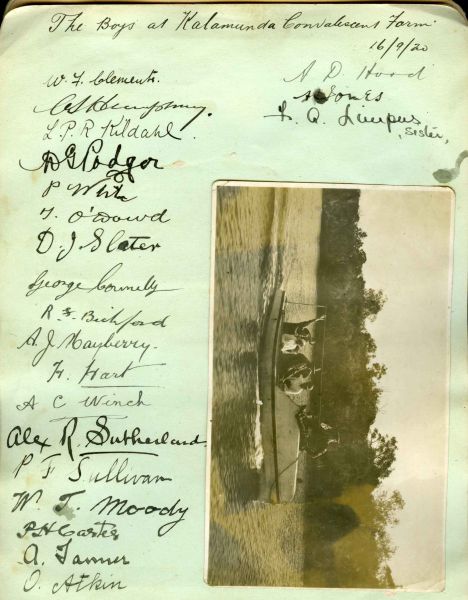 The Boys at Kalamunda Convalescent Farm.
16/9/20
W. F. Clements.
L. P. R Kildahl.
A G Podgor
P White
T. O'Dowd
D. J. Slater
George Connelly
R. S. Bickford
A. J. Mayberry.
H. Hart
A C Winch
Alex R. Sutherland.
P F Sullivan
W. T. Moody
P. H. Carter
A. Tanner
O. Atkin
A D Hood
A Jones
L. A. Limpus
Sister,